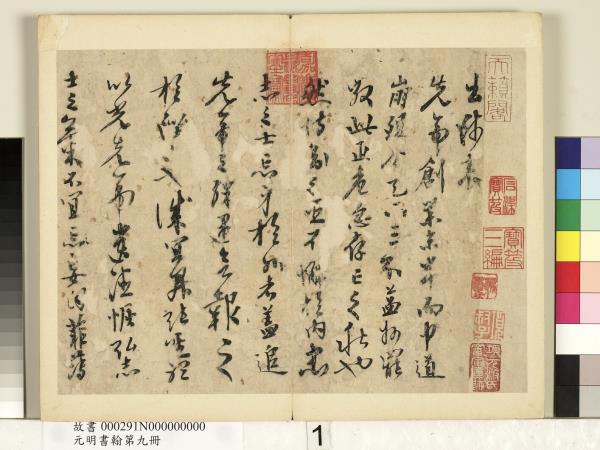 天籟閣
石渠寶笈
寶笈三編
出師表
先帝創業未半而中道
崩殂今天下三分益州罷
敝此正危急存亡之秋也
然侍衛之臣不懈於內忠
志之士忘身於外者蓋追
先帝之殊遇欲報之
於陛下也誠宜開張聖聽
以光先帝遺德恢弘志
士之氣不宜妄自菲薄
故書 000291N000000000
元明書翰第九冊
1